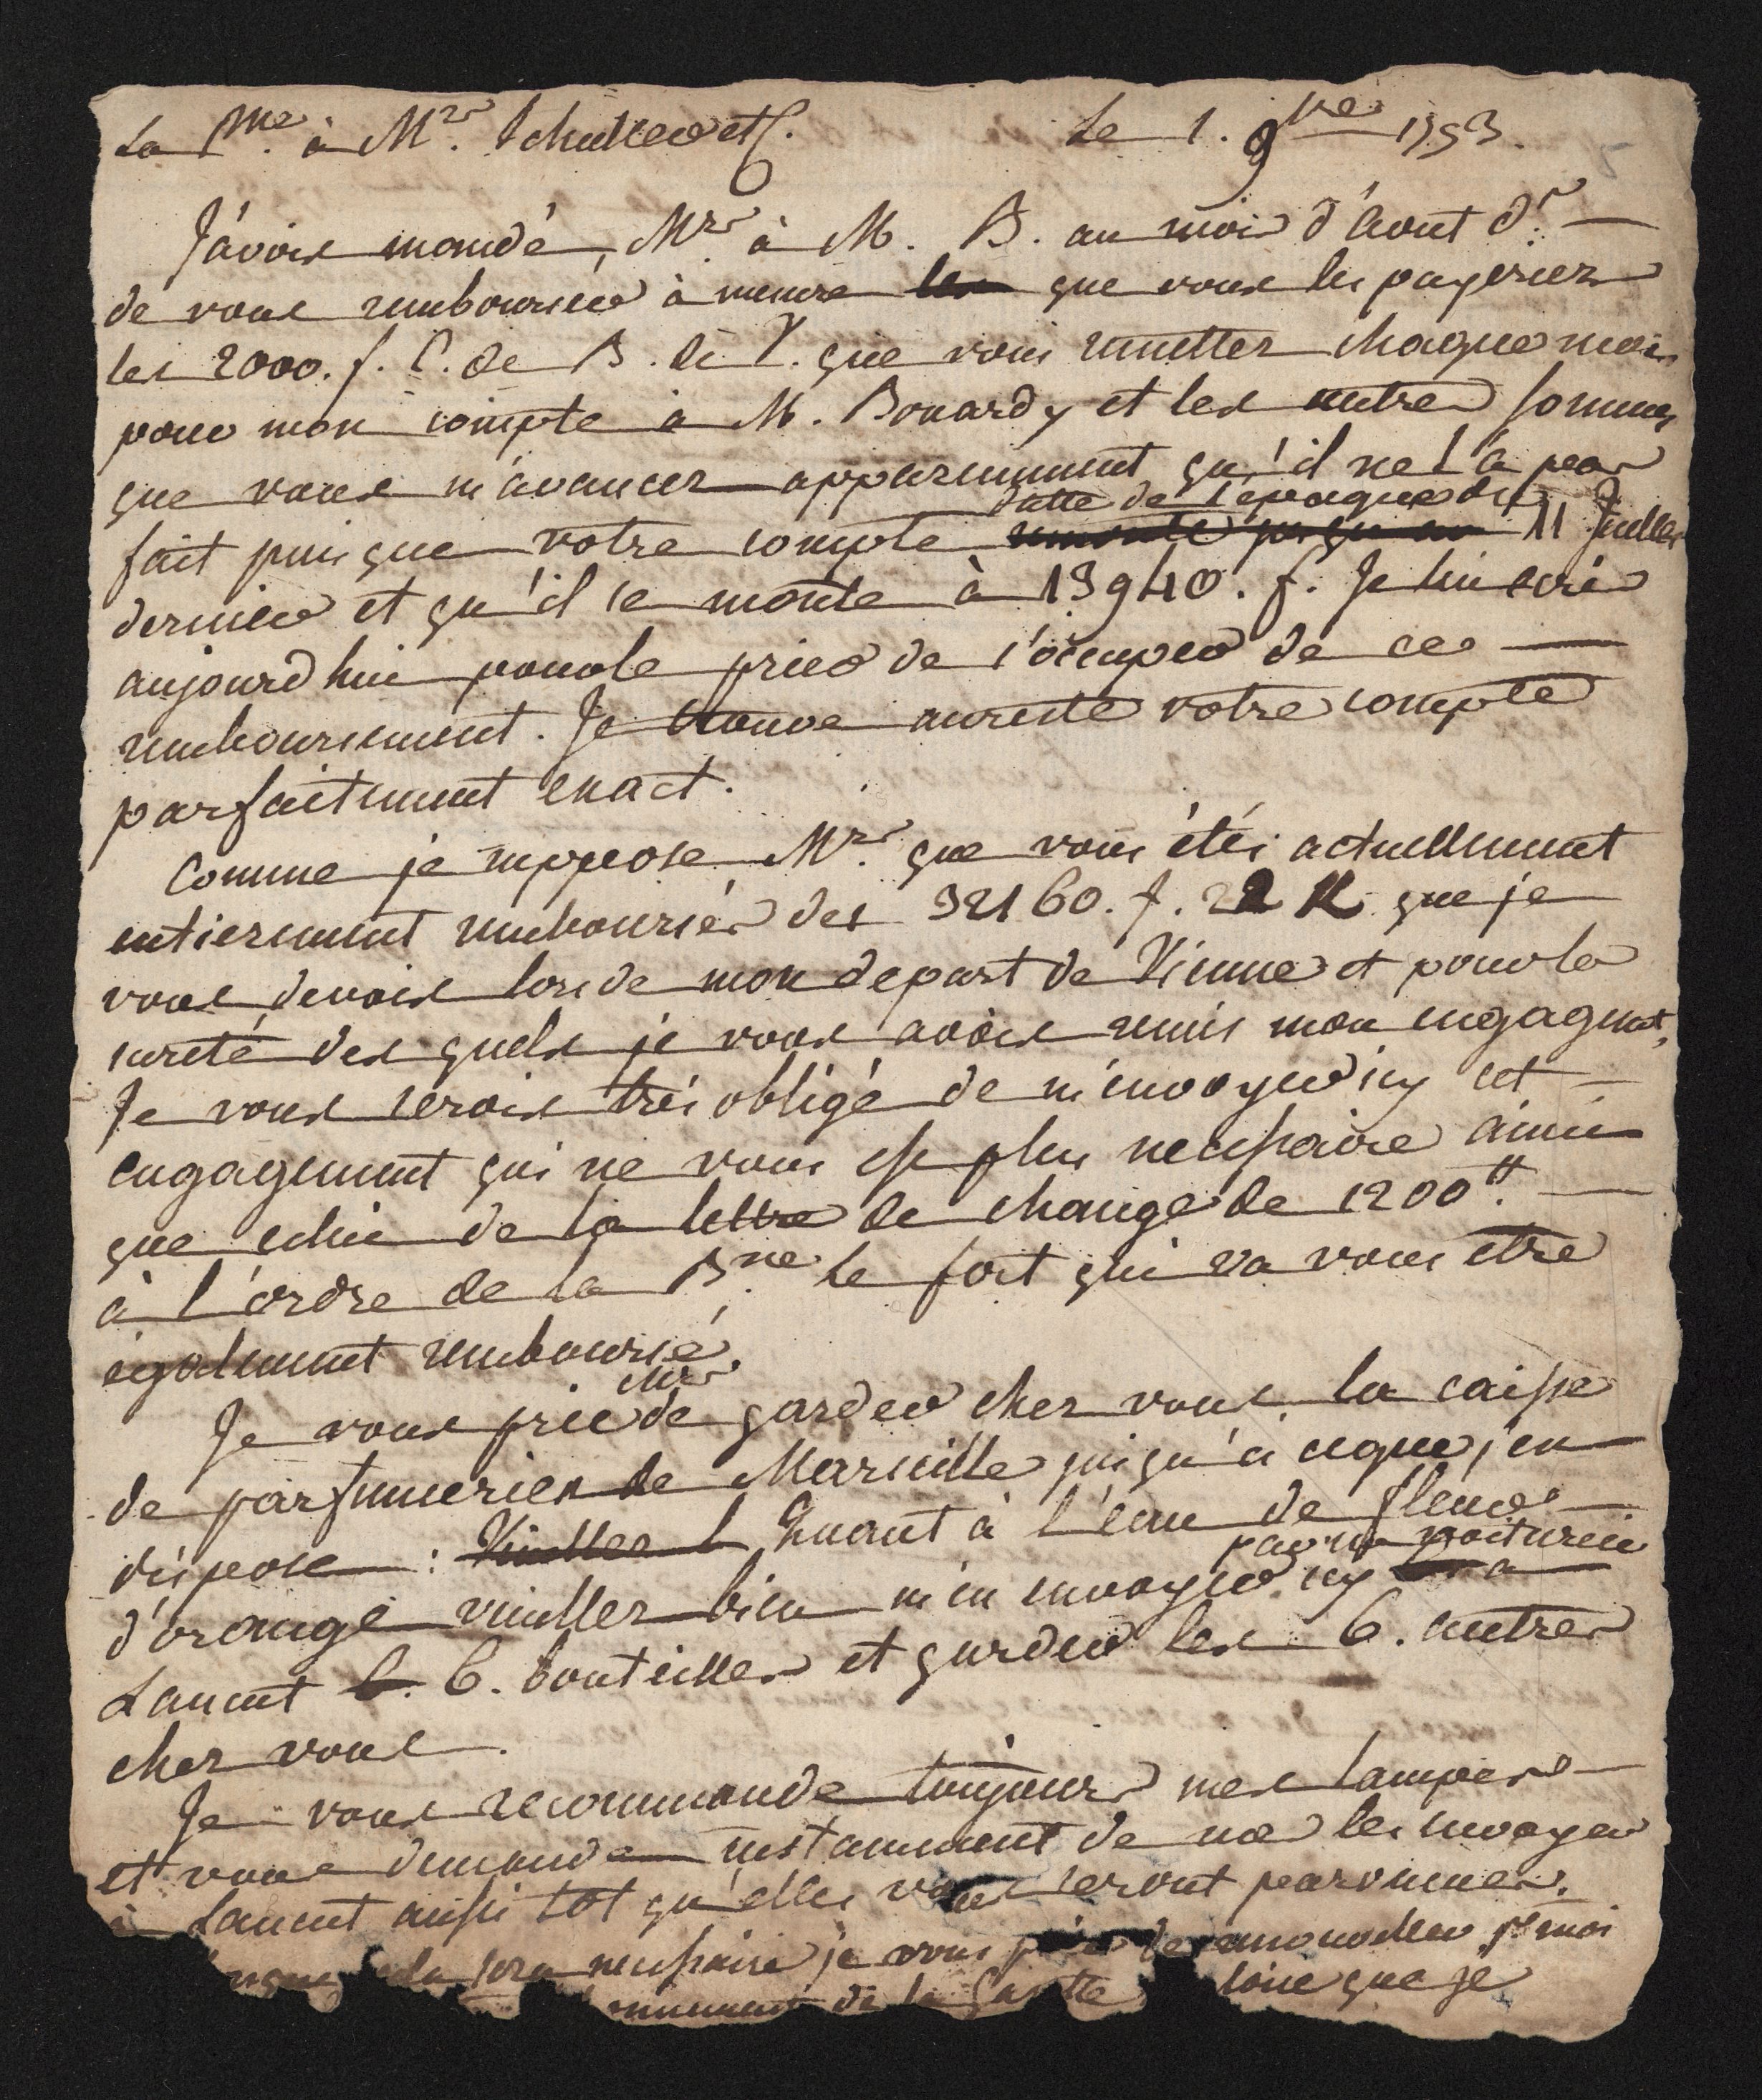 La P.me à Mrs. Schuller et C.
Le 1. 9bre 1793.
J'avois mandé, Mrs. à M. B. au mois d'Aout dr.
de vous rembourser à mesure les que vous les payeriez
les 2000. f. C. de B. de V. que vous remettez chaque mois
pour mon compte à M. Bonardy et les autres sommes
que vous m'avancez apparemment qu'il ne l'a pas
datte de l'epoque du
fait puis que votre compte remonte jusqu'au 11 Juillet
dernier et qu'il se monte à 13940. f. Je lui écris
aujourd'hui pour le prier de s'occuper de ce
remboursement. Je trouve au reste votre compte
parfaitement exact.
Comme je suppose Mrs. que vous étés actuellement
entierement remboursés des 32160. f. 22 K que je
vous devois lors de mon depart de Vienne et pour la
sureté des quels je vous avois remis mon engagemt,
Je vous serois très obligé de m'envoyer icy cet
engagement qui ne vous est plus necessaire ainsi
que celui de la lettre de change de 1200 ##.
à l'ordre de la Bne. le fort qui va vous etre
également remboursé.
Mrs
Je vous prie de garder chez vous la caisse
de parfumeries de Marseille jusqu'à ceque j'en
dispose : Veuillez l Quant à l'eau de fleurs
par un voiturier
d'orange veuillez bien m'en envoyer icy a
Lanent 6. 6. bouteilles et garder les 6. autres
chez vous.
Je vous recommande toujours mes lampes
et vous demande instamment de me les envoyer
à Lanent aussi tot qu'elles vous seront parvenues.
cela sera necessaire je vous prie de renouveller pr moi
de la Gazette que je